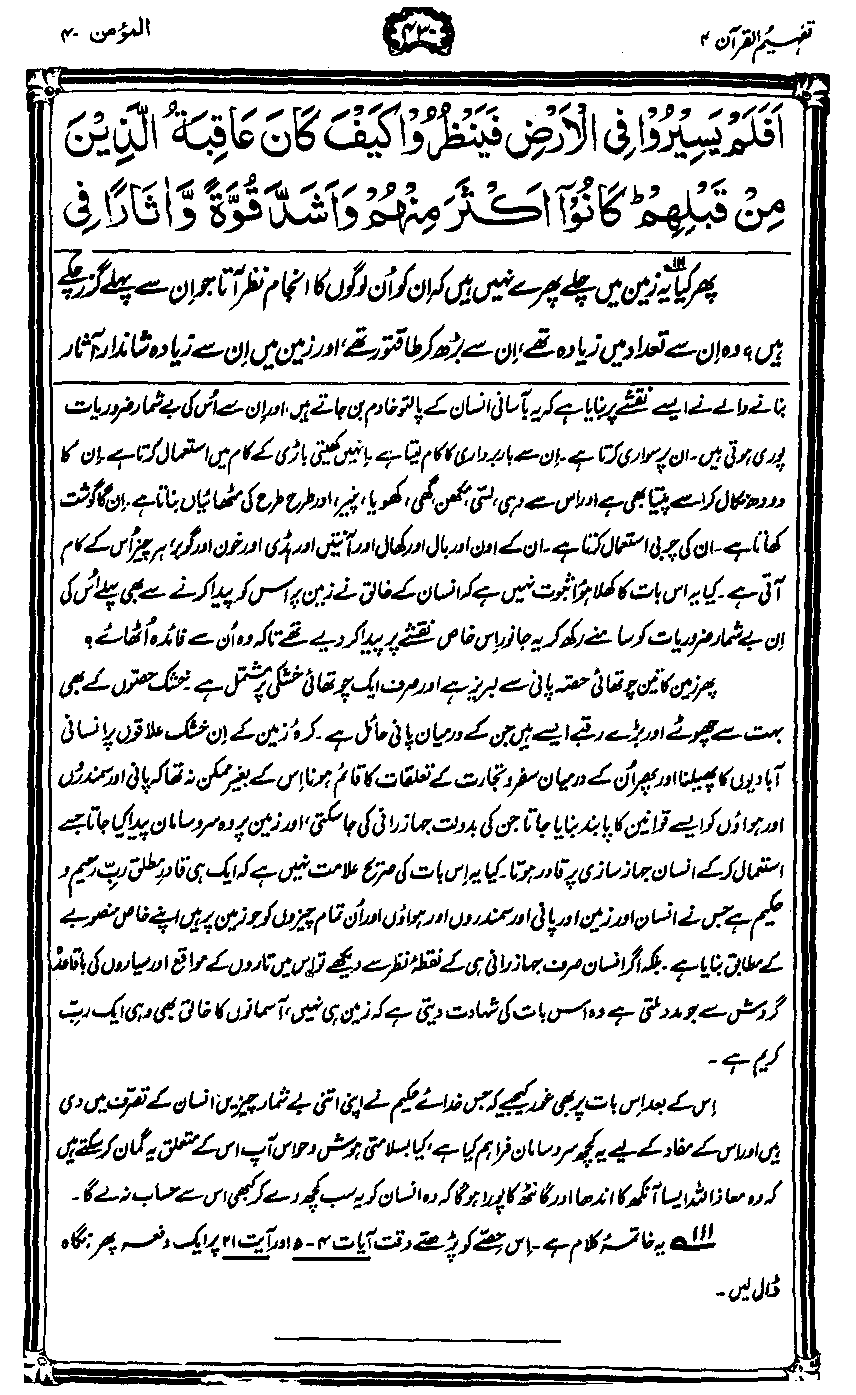 تفہیم القرآن ۴
۴۳۰
المؤمن ۴۰
اَفَلَمْ يَسِيْرُوْا فِى الْاَرْضِ فَيَنْظُرُوْا كَيْفَ كَانَ عَاقِبَةُ الَّذِيْنَ
مِنْ قَبْلِهِمْ ؕ كَانُوْٓا اَكْثَرَ مِنْهُمْ وَاَشَدَّ قُوَّةً وَّاٰثَارًا فِى
پھر کیا۱۱۱ یہ زمین میں چلے پھرے نہیں ہیں کہ ان کو اُن لوگوں کا انجام نظر آتا جو ان سے پہلے گزر چکے
ہیں؟ وہ ان سے تعداد میں زیادہ تھے، ان سے بڑھ کر طاقتور تھے، اور زمین میں ان سے زیادہ شاندار آثار
بنانے والے نے ایسے نقشے پر بنایا ہے کہ یہ بآسانی انسان کے پالتو خادم بن جاتے ہیں، اور ان سے اُس کی بے شمار ضروریات
پوری ہوتی ہیں۔ ان پر سواری کرتا ہے۔ ان سے بار برداری کا کام لیتا ہے۔ انہیں کھیتی باڑی کے کام میں استعمال کرتا ہے۔ اِن کا
دودھ نکال کر اسے پیتا بھی ہے اور اس سے دہی، لسّی، مکھن، گھی، کھویا، پنیر، اور طرح طرح کی مٹھائیاں بناتا ہے۔ اِن کا گوشت
کھاتا ہے۔ ان کی چربی استعمال کرتا ہے۔ ان کے اون اور بال اور کھال اور آنتیں اور ہڈی اور خون اور گوبر، ہر چیز اُس کے کام
آتی ہے۔ کیا یہ اس بات کا کھلا ہوا ثبوت نہیں ہے کہ انسان کے خالق نے زمین پر اس کو پیدا کرنے سے بھی پہلے اُس کی
اِن بے شمار ضروریات کو سامنے رکھ کر یہ جانور اِس خاص نقشے پر پیدا کر دیے تھے تاکہ وہ اُن سے فائدہ اُٹھائے؟
پھر زمین کا تین چوتھائی حصہ پانی سے لبریز ہے اور صرف ایک چوتھائی خشکی پر مشتمل ہے۔ خشک حصّوں کے بھی
بہت سے چھوٹے اور بڑے رقبے ایسے ہیں جن کے درمیان پانی حائل ہے۔ کرۂ زمین کے اِن خشک علاقوں پر انسانی
آبادیوں کا پھیلنا اور پھر اُن کے درمیان سفر و تجارت کے تعلقات کا قائم ہونا اِس کے بغیر ممکن نہ تھا کہ پانی اور سمندروں
اور ہواؤں کو ایسے قوانین کا پابند بنایا جاتا جن کی بدولت جہاز رانی کی جا سکتی، اور زمین پر وہ سر و سامان پیدا کیا جاتا جسے
استعمال کر کے انسان جہاز سازی پر قادر ہوتا۔ کیا یہ اِس بات کی صریح علامت نہیں ہے کہ ایک ہی قادرِ مطلق ربِّ رحیم و
حکیم ہے جس نے انسان اور زمین اور پانی اور سمندروں اور ہواؤں اور اُن تمام چیزوں کو جو زمین پر ہیں اپنے خاص منصوبے
کے مطابق بنایا ہے۔ بلکہ اگر انسان صرف جہاز رانی ہی کے نقطۂ نظر سے دیکھے تو اِس میں تاروں کے مواقع اور سیاروں کی باقاعدہ
گردش سے جو مدد ملتی ہے وہ اس بات کی شہادت دیتی ہے کہ زمین ہی نہیں، آسمانوں کا خالق بھی وہی ایک ربِّ
کریم ہے۔
اِس کے بعد اِس بات پر بھی غور کیجیے کہ جس خدائے حکیم نے اپنی اتنی بے شمار چیزیں انسان کے تصرّف میں دی
ہیں اور اس کے مفاد کے لیے یہ کچھ سر و سامان فراہم کیا ہے، کیا بسلامتی ہوش و حواس آپ اس کے متعلق یہ گمان کر سکتے ہیں
کہ وہ معاذ اللہ ایسا آنکھ کا اندھا اور گانٹھ کا پورا ہوگا کہ وہ انسان کو یہ سب کچھ دے کر کبھی اس سے حساب نہ لے گا۔
۱۱۱ یہ خاتمۂ کلام ہے۔ اِس حصّے کو پڑھتے وقت آیات ۴-۵ اور آیت ۲۱ پر ایک دفعہ پھر نگاہ
ڈال لیں۔